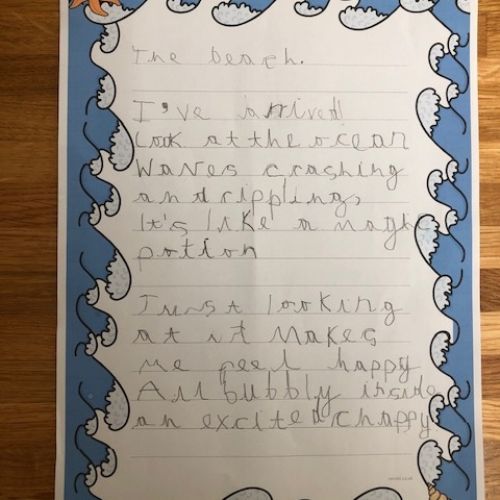 The beach.
I've arrived!
Look at the ocean
Waves crashing
and rippling,
It's like a magic
potion
Just looking
at it Makes
me feel happy
All bubbly inside
an excited chappy